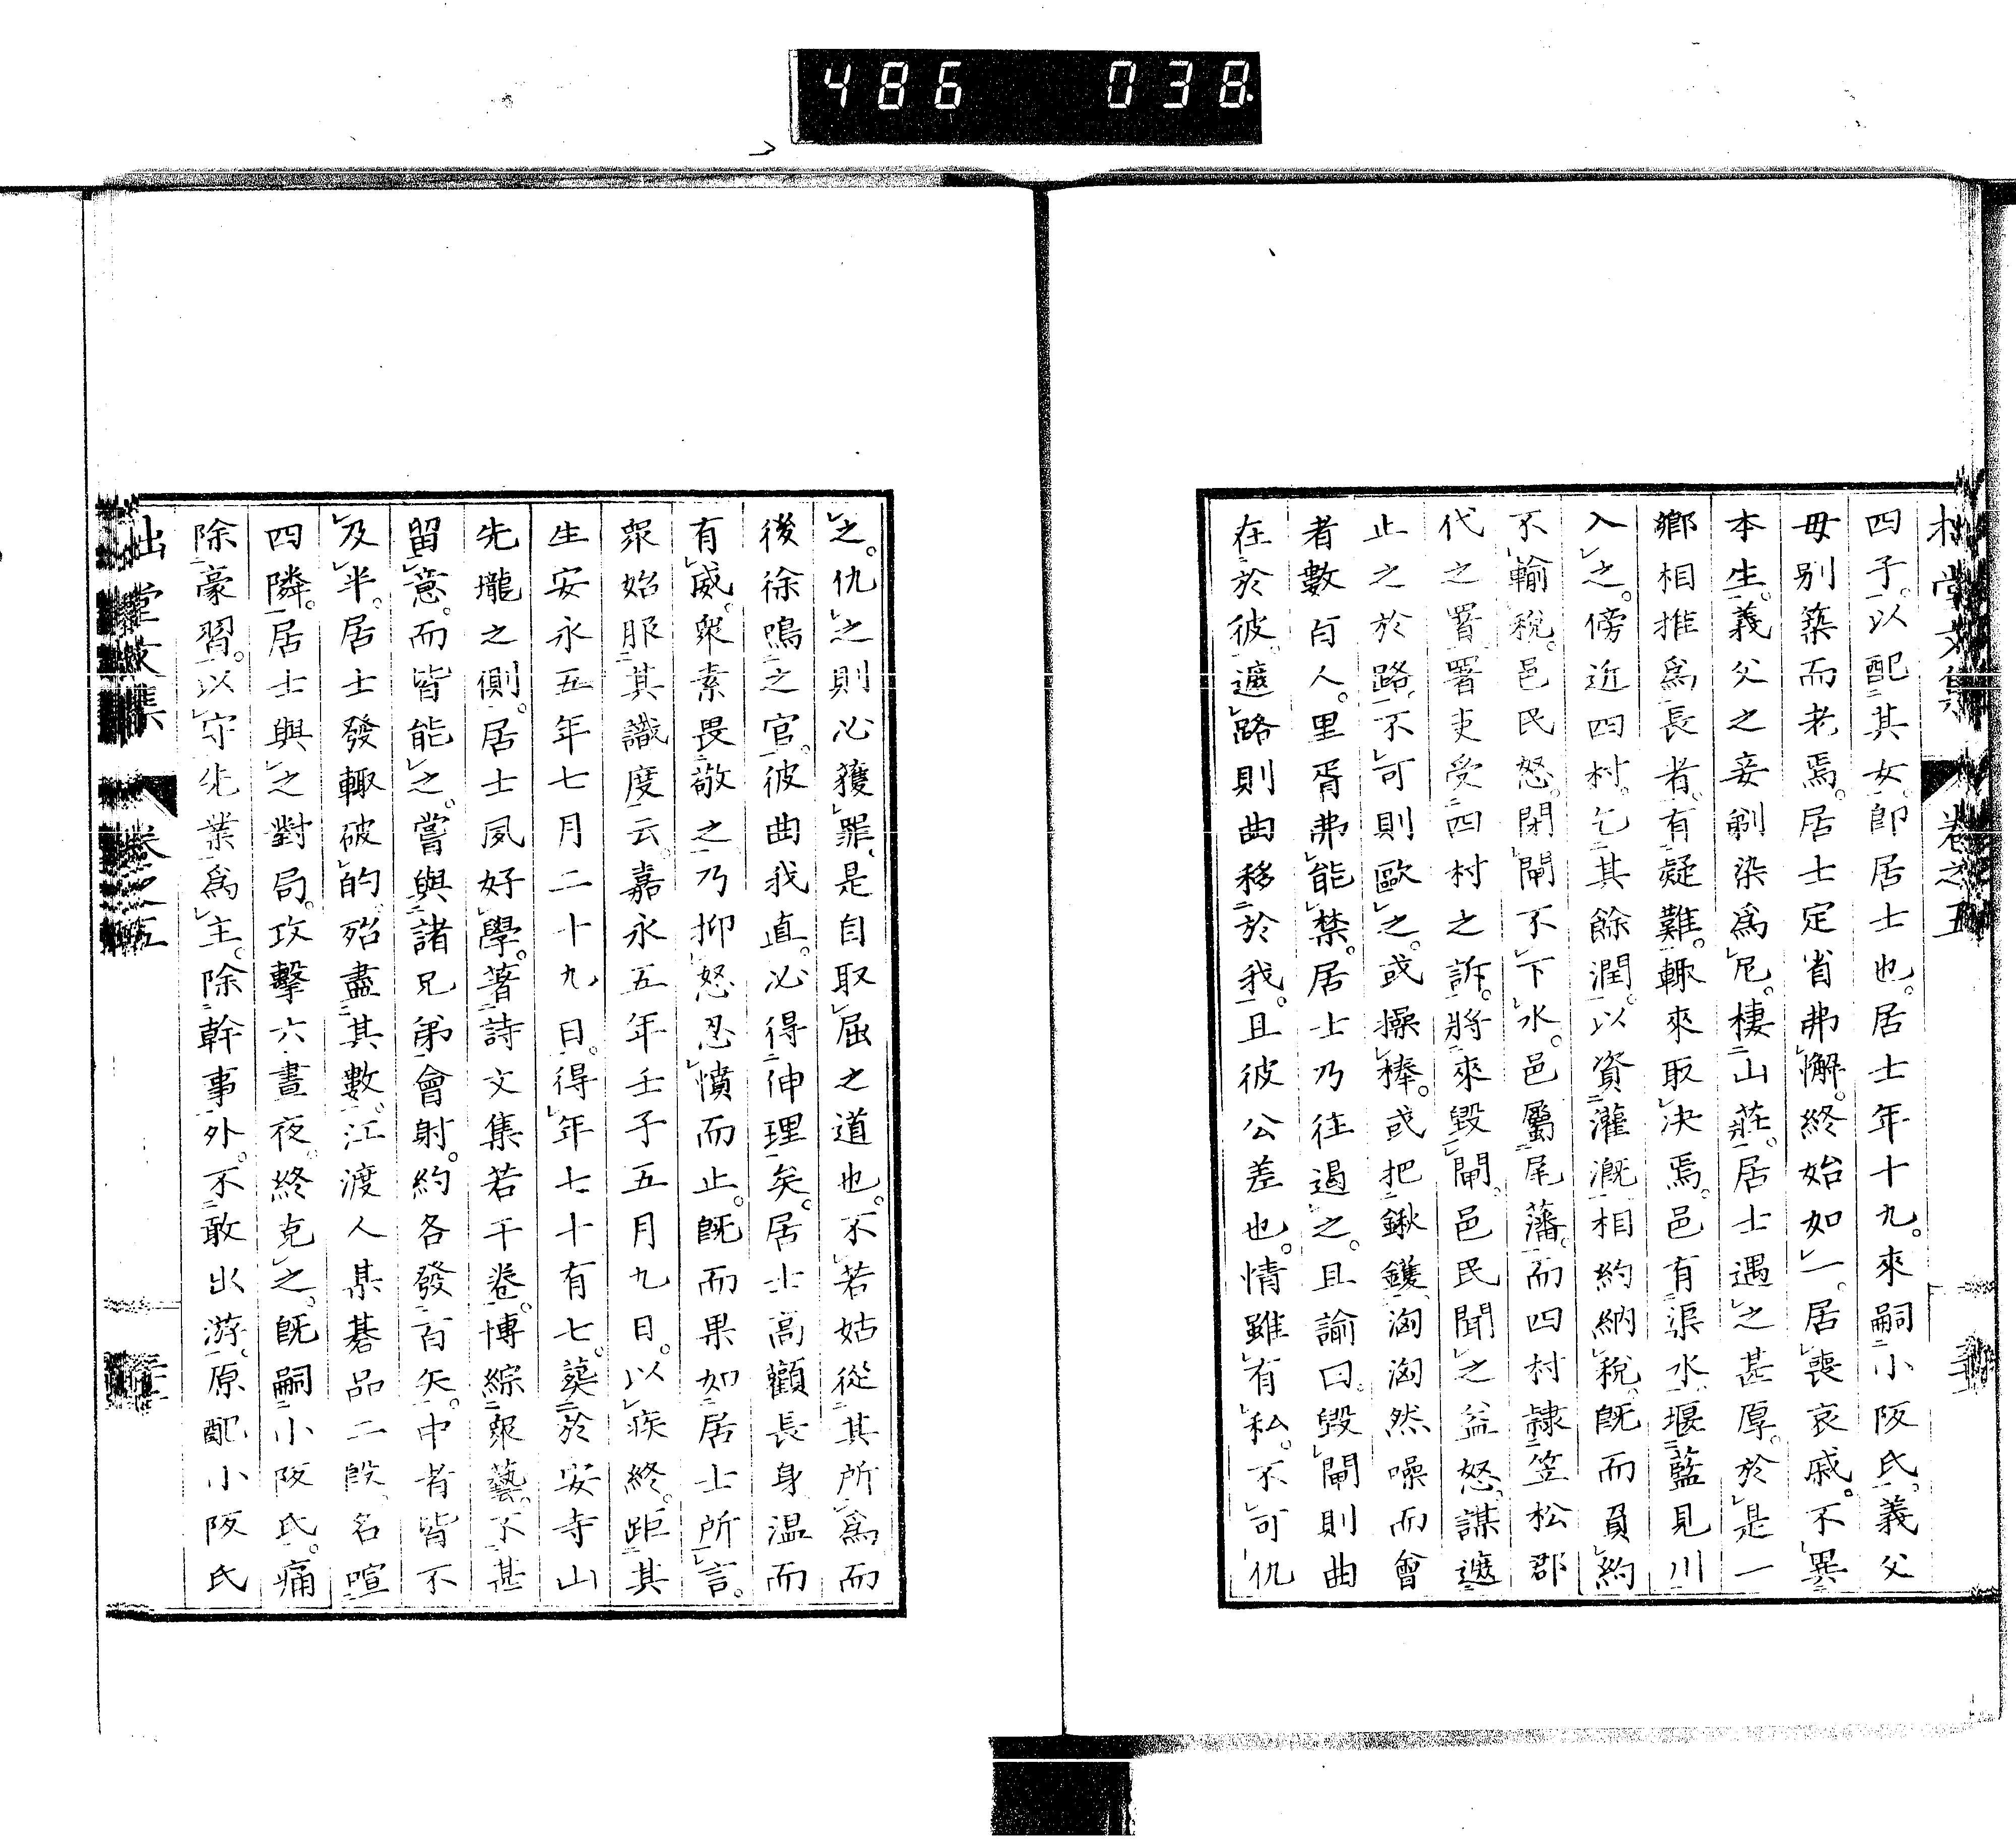 486 038
四子。以配其女。卽居士也。居士年十九。來嗣小阪氏。義父
母别築而老焉。居士定省弗懈。終始如一。居喪哀戚。不異
本生。義父之妾剃染爲尼。棲山莊。居士遇之甚厚。於是一
鄉相推爲長者。有疑難。輒來取决焉。邑有渠水。堰藍見川
入之。傍近四村。乞其餘潤。以資灌漑。相約納稅。旣而負約
不輸稅。邑民怒。閉閘不下水。邑屬尾藩。而四村隷笠松郡
代之署。署吏受四村之訴。將來毀閘。邑民聞之益怒。謀遮
止之於路。不可則歐之。或操棒。或把鍬钁。洶洶然噪而會
者數百人。里胥弗能禁。居士乃往遏之。且諭曰。毀閘則曲
在於彼。遮路則曲移於我。且彼公差也。情雖有私。不可仇
之。仇之則必獲罪。是自取屈之道也。不若姑從其所爲而
後徐鳴之官。彼曲我直。必得伸理矣。居士高顴長身温而
有威。衆素畏敬之。乃抑怒忍憤而止。旣而果如居士所言。
衆始服其識度云。嘉永五年壬子五月九日。以疾終。距其
生安永五年七月二十九日。得年七十有七。葬於安寺山
先壠之側。居士夙好學。著詩文集若干卷。博綜衆藝。不甚
留意。而皆能之。嘗與諸兄弟會射。約各發百矢。中者皆不
及半。居士發輒破的。殆盡其數。江渡人某碁品二段。名喧
四隣。居士與之對局。攻擊六晝夜。終克之。旣嗣小阪氏。痛
除豪習。以守先業爲主。除幹事外。不敢出游。原配小阪氏
堂文集 卷之五